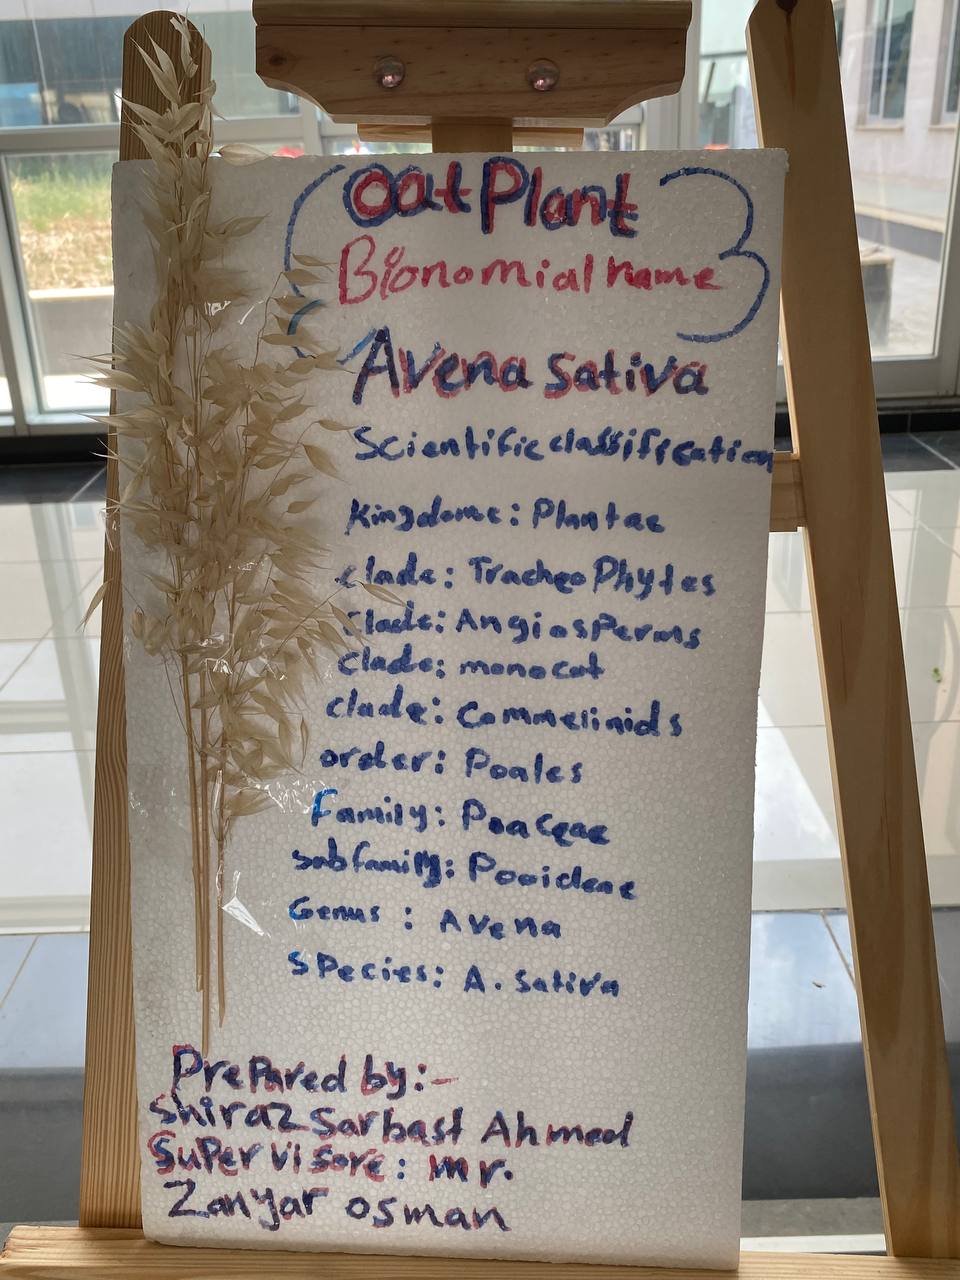 Oat Plant
Bionomial name
Avena sativa
Scientific classification
Kingdome: Plantae
clade: TracheoPhytes
clade: AngiosPerms
clade: monocot
clade: Commelinids
order: Poales
Family: Poaceae
subfamily: Pooideae
Genus : Avena
sPecies: A. sativa
PrePared by:-
shiraz Sarbast Ahmed
SuPervisore: mr.
Zanyar osman